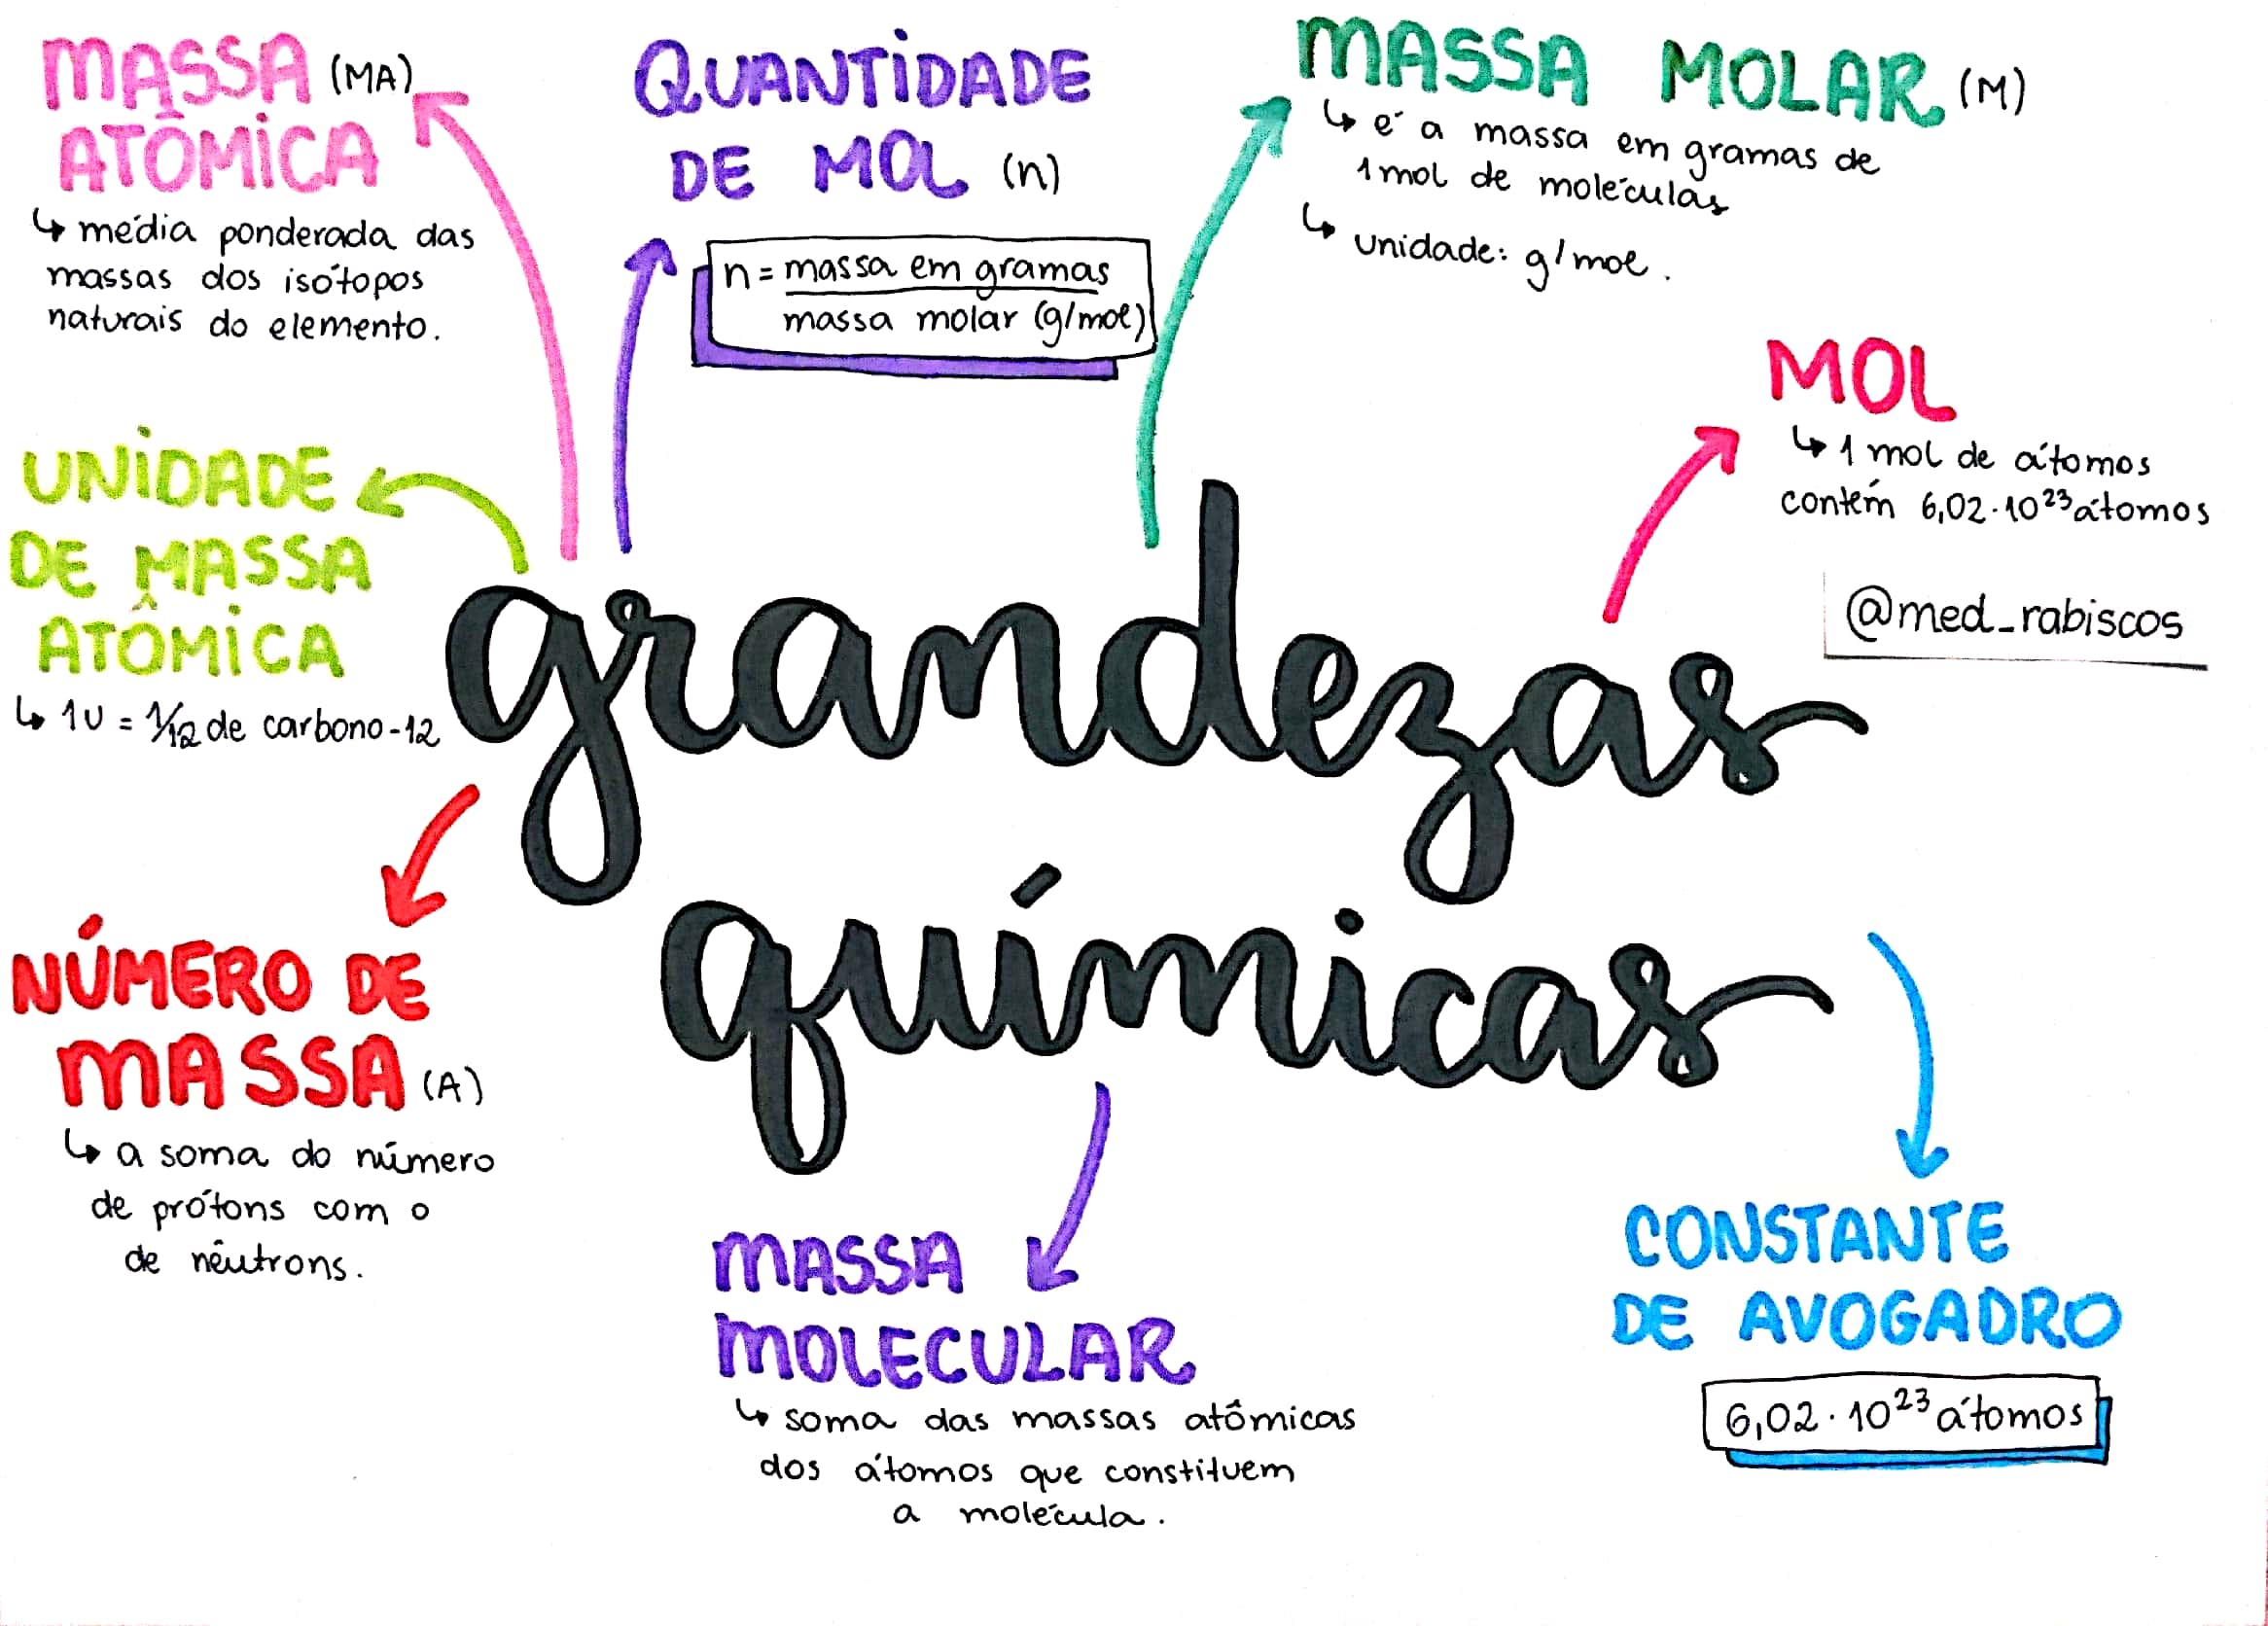 MASSA (MA)
ATÔMICA
↳ média ponderada das
massas dos isótopos
naturais do elemento.
QUANTIDADE
DE MOL (n)
n = massa em gramas
massa molar (g/mol)
MASSA MOLAR (M)
↳ é a massa em gramas de
1 mol de moléculas
↳ unidade: g/mol.
MOL
↳ 1 mol de átomos
contém 6,02·10²³ átomos
@med_rabiscos
UNIDADE
DE MASSA
ATÔMICA
↳ 1u = 1/12 de carbono-12
grandezas
químicas
NÚMERO DE
MASSA (A)
↳ a soma do número
de prótons com o
de nêutrons.
MASSA
MOLECULAR
↳ soma das massas atômicas
dos átomos que constituem
a molécula.
CONSTANTE
DE AVOGADRO
6,02·10²³ átomos